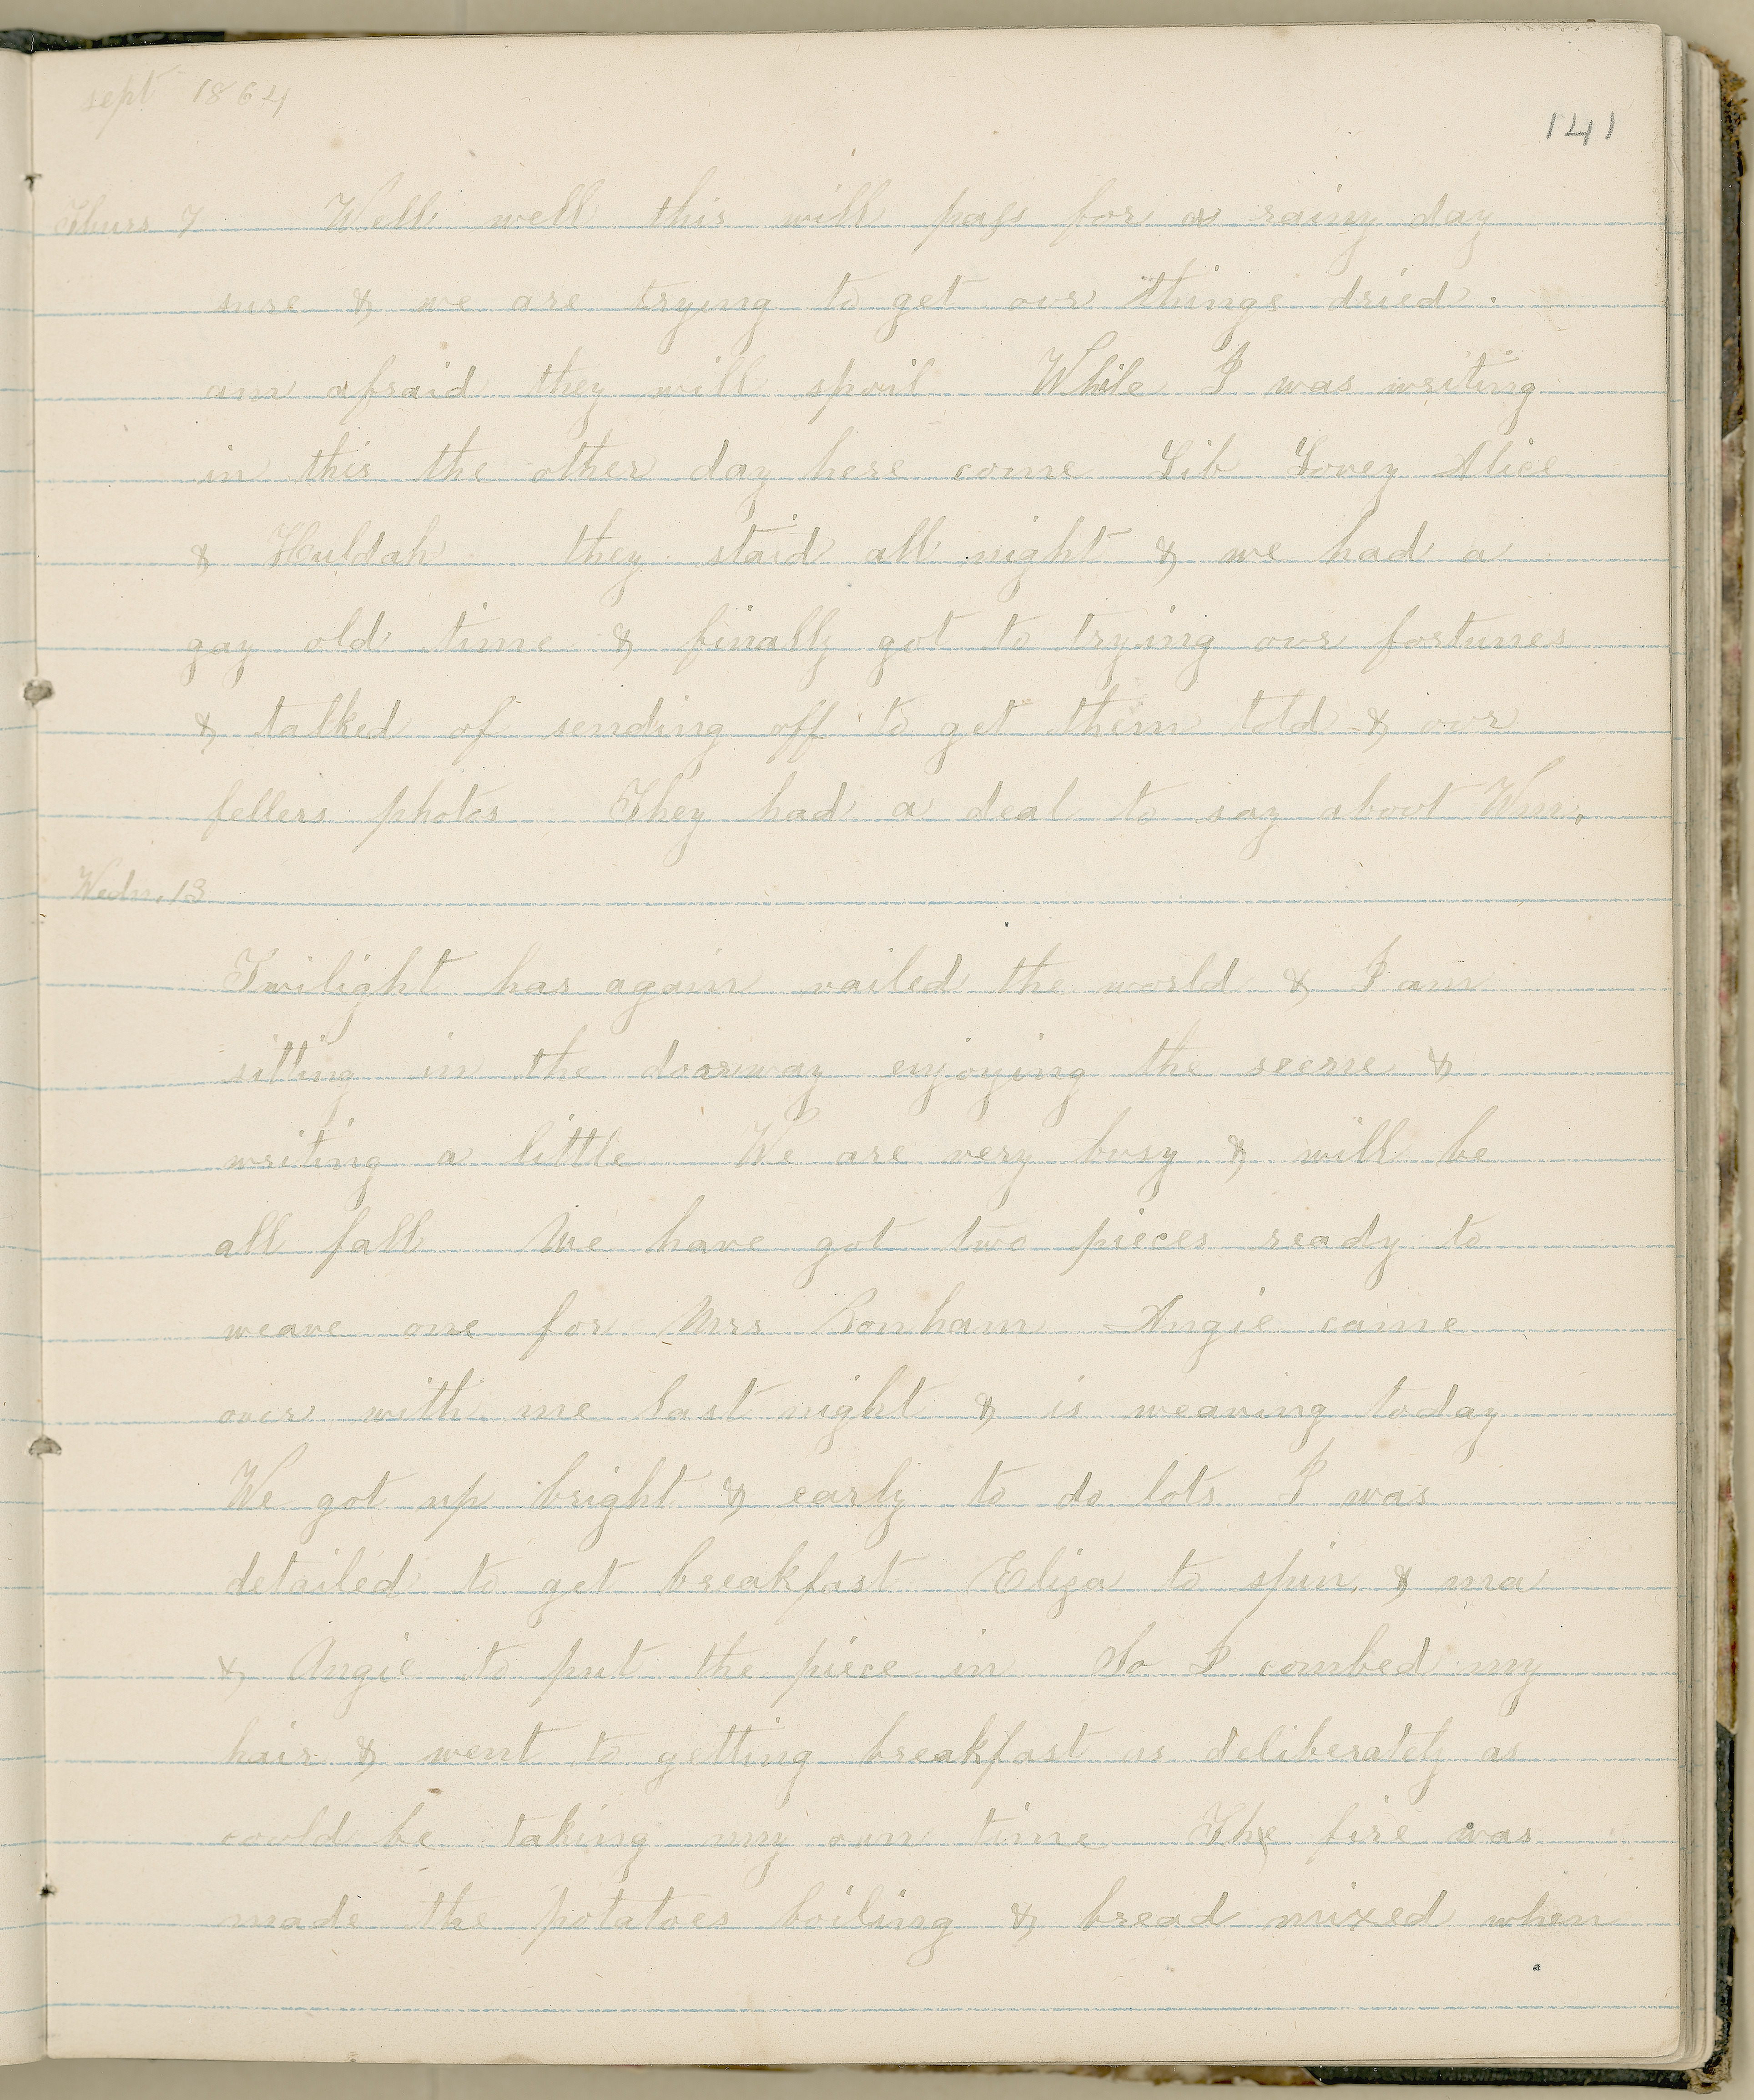 sept 1864
141
Thurs 7 Well well this will pass for a rainy day
sure & we are trying to get our things dried.
am afraid they will spoil While I was writing
in this the other day here come Lib Lovey Alice
& Huldah they staid all night & we had a
gay old time & finally got to trying our fortunes
& talked of sending off to get them told & our
fellers photos They had a deal to say about Wm.
Wedn. 13
Twilight has again vailed the world & I am
sitting in the doorway enjoying the scene &
writing a little We are very busy & will be
all fall We have got two pieces ready to
weave one for Mrs Bonham Angie came
over with me last night & is weaving today
We got up bright & early to do lots I was
detailed to get breakfast Eliza to spin, & ma
& Angie to put the piece in So I combed my
hair & went to getting breakfast as deliberately as
could be taking my own time The fire was
made the potatoes boiling & bread mixed when